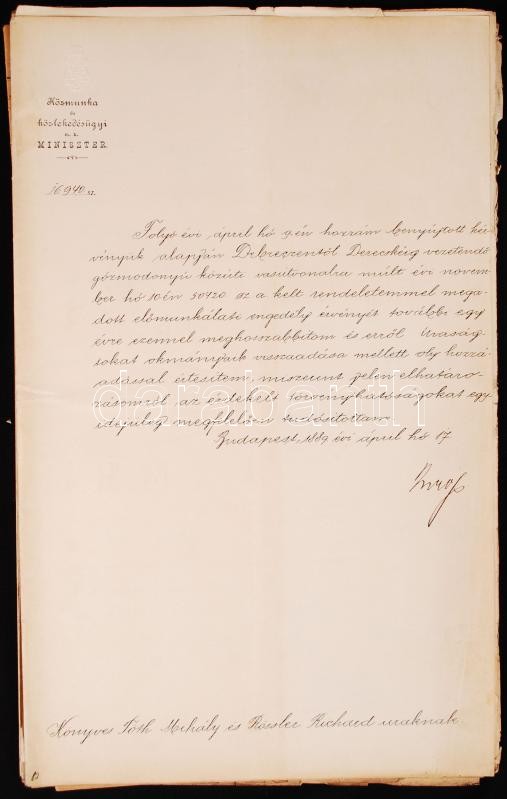 Közmunka
és
közlekedésügyi
m. k.
MINISZTER.
16940 sz.
Folyó évi április hó 9-én hozzám benyújtott kér-
vényük alapján Debreczentől Derecskéig vezetendő
gőzmozdonyú közúti vasutvonalra mult évi novem-
ber hó 10én 50420 sz a kelt rendeletemmel mega-
dott előmunkálati engedély érvényét további egy
évre ezennel meghosszabbitom és erről Uraság-
tokat okmányaik visszaadása mellett oly hozzá-
adással értesitem, miszerint jelen elhatáro-
zásomról az érdekelt törvényhatóságokat egy
idejüleg megfelelően tudósitottam.
Budapest, 1889 évi április hó 17
Könyves Tóth Mihály és Roessler Richard uraknak
darabanth